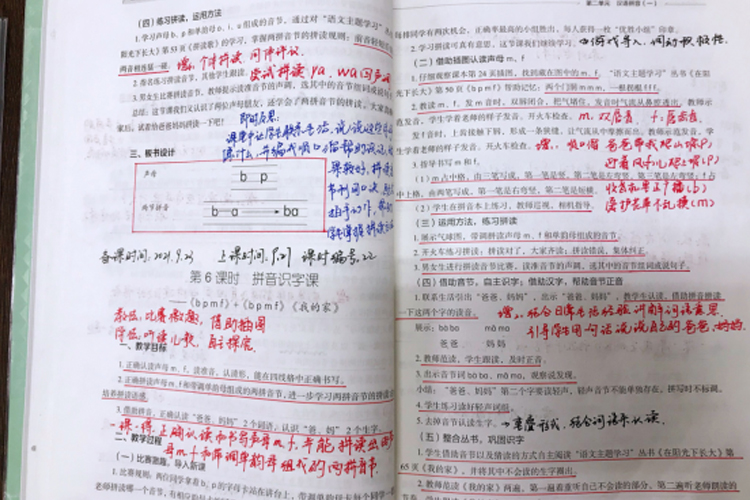 （四）练习拼读，运用方法
1. 学习声母 b、p 和单韵母 ɑ、i、u 组成的音节。通过对“语文主题学习”
阳光下长大》第 53 页《拼读歌》的学习，掌握两拼音节的拼读规则：前音轻短后
两音相连猛一碰。增，个体拼读，同伴评议。
2. 指名练习拼读音节，其他学生跟读。尝试拼读 pa、wa 四声
3. 男女生比赛拼读音节。教师提示读准音节的声调，选其中的音节组词或说句
总结：这节课我们又认识了两位声母朋友，还学会了两拼音节的拼读，大家
家后，试着给爸爸妈妈拼读一下吧！
即时反思：
三、板书设计
声母
b p
两拼音节
b ɑ bɑ
备课时间：2021.9.23 上课时间：9.27 课时编号：22
第 6 课时 拼音识字课
——《b p m f》+《b p m f》《我的家》
教法：比赛激趣，借助插图
学法：听读儿歌，自主探究
一、教学目标
1. 正确认读声母 m、f，读准音，认清形，能在四线格中正确书写。
2. 正确拼读声母 m、f 和带调单韵母组成的两拼音节，进一步学习两拼音节的拼读方法，
培养拼读语感。
3. 借助拼音，正确认读“爸爸、妈妈”2 个词语，认识“爸、妈”2 个生字。
一课一得：正确认读和书写声母 m f，并能拼读出
声母 m f 和带调单韵母组成的两拼音节。
二、教学过程
（一）比赛激趣，导入新课
1. 比赛规则：两位同学拿着 b、p 的字母卡站在讲台上，带调单韵母卡每个同学一
第二单元 汉语拼音（一）
每位同学有两次机会，正确率最高的小组胜出，每人获得一枚“优胜小组”印章。
2. 学习拼读可真有意思，这节课我们继续学习。→游戏导入，调动积极性
（二）借助插图认读声母 m、f
1. 仔细观察课本第 24 页插图，找到藏在图中的 m、f。“语文主题学习”丛书《在阳
光下长大》第 50 页《b p m f》帮助记忆：两个门洞 m m m，一根拐棍 f f f。
2. 教读 m、f。发 m 音时，双唇闭合，把气堵住，发音时气流从鼻腔透出。教师示
范发音，学生看老师的样子发音，开火车检查。m，双唇音 f，唇齿音
发 f 音时，上齿接触下唇，形成一条狭缝，让气流从中摩擦而出。教师示范发音，学
生学着老师的样子发音，开火车检查。增，顺口溜 爸爸带我爬山坡(p)
3. 指导书写 m 和 f。
（1）m 占中格，由三笔写成，第一笔是竖，第二笔是左弯竖，第三笔是左弯竖；f 占
中上格，由两笔写成，第一笔是右弯竖，第二笔是短横。收音机里正广播(b)
（2）学生在拼音本上练习，教师巡视，相机指导。爱护花草不乱摸(m)
（三）运用方法，练习拼读
1. 展示气球图，带调拼读由声母 m、f 和单韵母组成的音节。
2. 开火车练习拼读：拼读对了，大家齐读；拼读错误，集体纠正。
3. 男女生进行拼读音节比赛，读准音节的声调，选其中的音节组词或说句子。
（四）借助音节，自主识字；借助汉字，帮助音节正音
1. 联系生活引出“爸爸、妈妈”，出示“爸爸、妈妈”，教学生认读，借助拼音拼读
一下这两个字的读音。增，结合日常生活经验讲解词语意思
展示：bɑ̀bɑ mɑ̄mɑ 引导学生用一句话说说自己的爸爸、妈妈
爸爸 妈妈
2. 教师范读，学生跟读，及时正音。
3. 出示音节词 bɑ̀bɑ、mɑ̄mɑ，观察说发现。
小结：“爸爸、妈妈”第二个字要读轻声，轻声音节不能单独存在，拼写时不标调。
4. 学生练习读好轻声词组。
5. 去掉音节认读生字。→重叠词，结合词语来认读。
（五）整合丛书，巩固识字
1. 学生借助音节以及猜读的方式自主阅读“语文主题学习”丛书《在阳光下长大》第
65 页《我的家》，并将其中不会读的生字圈出。
2. 教师范读《我的家》两遍，第一遍着重听自己不会读的部分，第二遍听老师朗读的